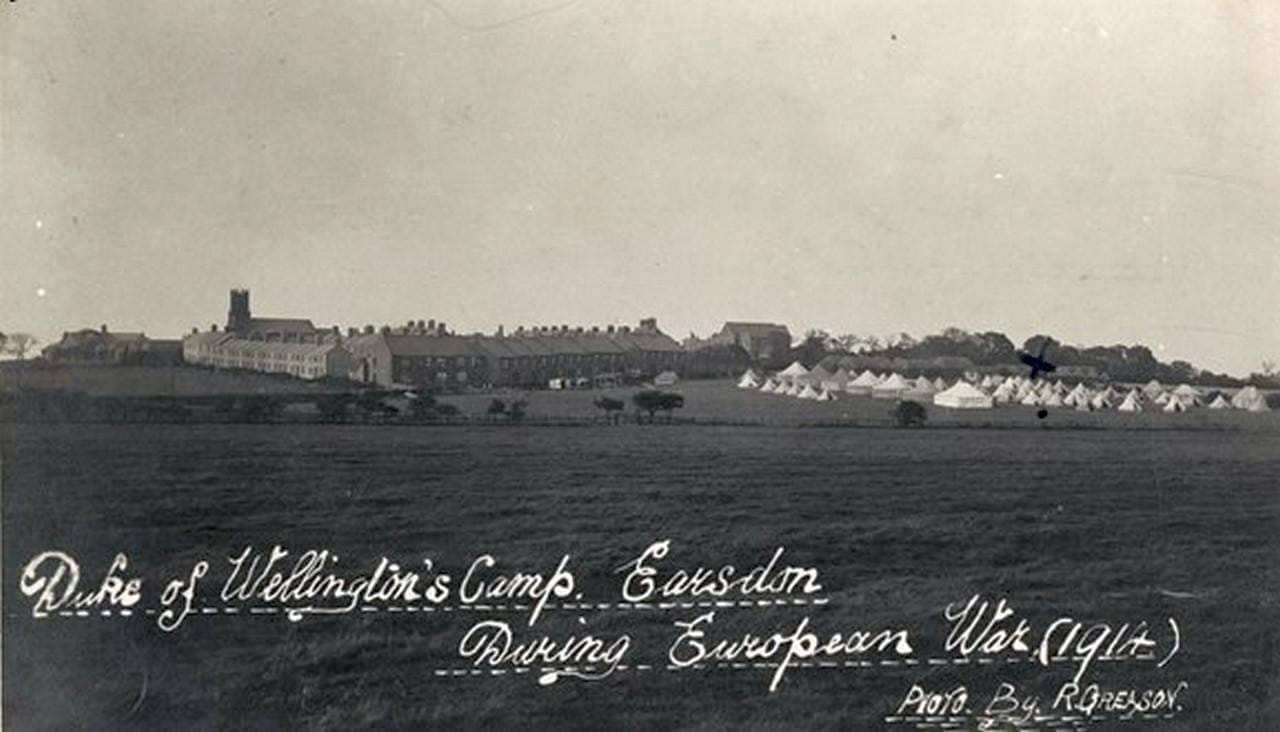 Duke of Wellington's Camp. Earsdon
During European War. (1914)
Photo. By. R. Greason.